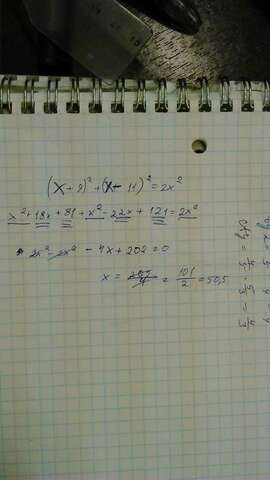 (x+9)²+(x-11)²=2x²
x²+18x+81+x²-22x+121=2x²
2x²-2x²-4x+202=0
x = 202/4 = 101/2 = 50,5